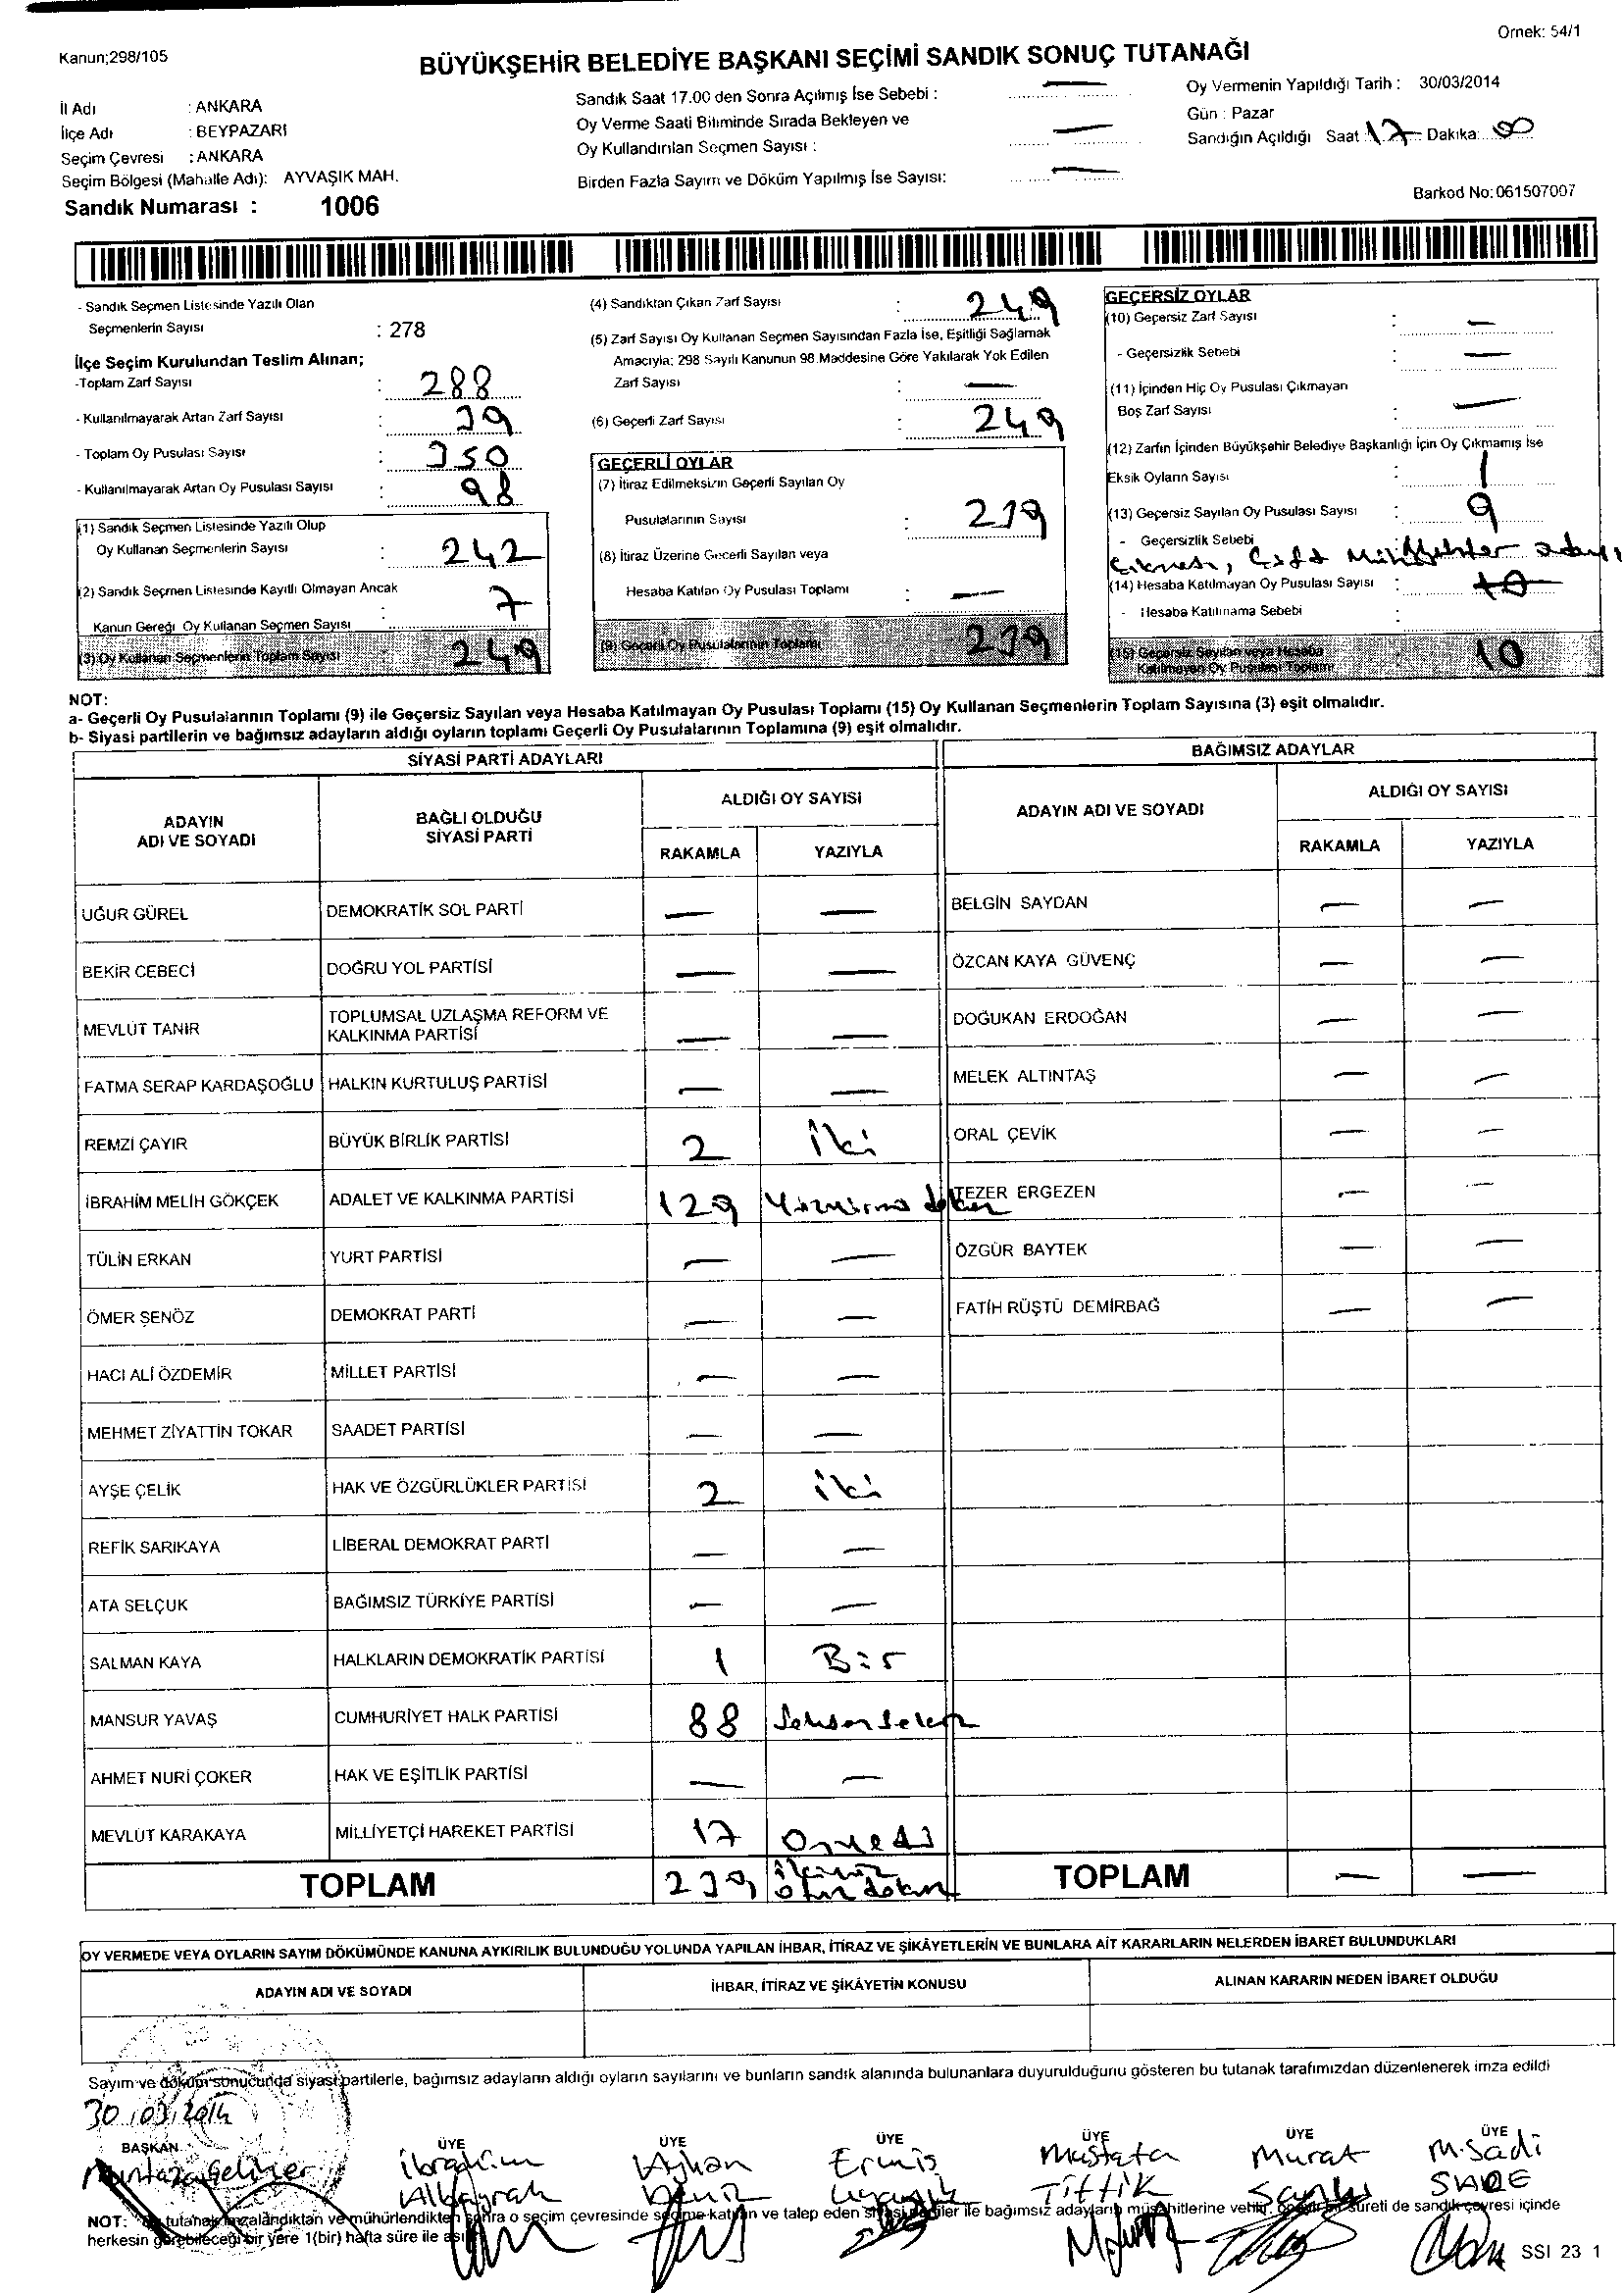 Kanun;298/105
Örnek: 54/1
BÜYÜKŞEHİR BELEDİYE BAŞKANI SEÇİMİ SANDIK SONUÇ TUTANAĞI
İl Adı : ANKARA
İlçe Adı : BEYPAZARI
Seçim Çevresi : ANKARA
Seçim Bölgesi (Mahalle Adı): AYVAŞIK MAH.
Sandık Numarası : 1006
Sandık Saat 17.00 den Sonra Açılmış İse Sebebi : —
Oy Verme Saati Bitiminde Sırada Bekleyen ve
Oy Kullandırılan Seçmen Sayısı : —
Birden Fazla Sayım ve Döküm Yapılmış İse Sayısı: —
Oy Vermenin Yapıldığı Tarih : 30/03/2014
Gün : Pazar
Sandığın Açıldığı Saat 17 Dakika:
Barkod No:061507007
- Sandık Seçmen Listesinde Yazılı Olan
Seçmenlerin Sayısı : 278
İlçe Seçim Kurulundan Teslim Alınan;
-Toplam Zarf Sayısı : 288
- Kullanılmayarak Artan Zarf Sayısı : 39
- Toplam Oy Pusulası Sayısı : 350
- Kullanılmayarak Artan Oy Pusulası Sayısı : 98
(1) Sandık Seçmen Listesinde Yazılı Olup
Oy Kullanan Seçmenlerin Sayısı : 242
(2) Sandık Seçmen Listesinde Kayıtlı Olmayan Ancak
Kanun Gereği Oy Kullanan Seçmen Sayısı : 7
(3) Oy Kullanan Seçmenlerin Toplam Sayısı 249
(4) Sandıktan Çıkan Zarf Sayısı : 249
(5) Zarf Sayısı Oy Kullanan Seçmen Sayısından Fazla İse, Eşitliği Sağlamak
Amacıyla; 298 Sayılı Kanunun 98.Maddesine Göre Yakılarak Yok Edilen
Zarf Sayısı : —
(6) Geçerli Zarf Sayısı : 249
GEÇERLİ OYLAR
(7) İtiraz Edilmeksizin Geçerli Sayılan Oy
Pusulalarının Sayısı : 239
(8) İtiraz Üzerine Geçerli Sayılan veya
Hesaba Katılan Oy Pusulası Toplamı : —
(9) Geçerli Oy Pusulalarının Toplamı 239
GEÇERSİZ OYLAR
(10) Geçersiz Zarf Sayısı : —
- Geçersizlik Sebebi : —
(11) İçinden Hiç Oy Pusulası Çıkmayan
Boş Zarf Sayısı : —
(12) Zarfın İçinden Büyükşehir Belediye Başkanlığı İçin Oy Çıkmamış İse
Eksik Oyların Sayısı : 1
(13) Geçersiz Sayılan Oy Pusulası Sayısı : 9
- Geçersizlik Sebebi
(14) Hesaba Katılmayan Oy Pusulası Sayısı : 10
- Hesaba Katılmama Sebebi :
(15) Geçersiz Sayılan veya Hesaba
Katılmayan Oy Pusulası Toplamı 10
NOT:
a- Geçerli Oy Pusulalarının Toplamı (9) ile Geçersiz Sayılan veya Hesaba Katılmayan Oy Pusulası Toplamı (15) Oy Kullanan Seçmenlerin Toplam Sayısına (3) eşit olmalıdır.
b- Siyasi partilerin ve bağımsız adayların aldığı oyların toplamı Geçerli Oy Pusulalarının Toplamına (9) eşit olmalıdır.
SİYASİ PARTİ ADAYLARI
ADAYIN ADI VE SOYADI
BAĞLI OLDUĞU SİYASİ PARTİ
ALDIĞI OY SAYISI
RAKAMLA YAZIYLA
UĞUR GÜREL DEMOKRATİK SOL PARTİ — —
BEKİR CEBECİ DOĞRU YOL PARTİSİ — —
MEVLÜT TANIR TOPLUMSAL UZLAŞMA REFORM VE KALKINMA PARTİSİ — —
FATMA SERAP KARDAŞOĞLU HALKIN KURTULUŞ PARTİSİ — —
REMZİ ÇAYIR BÜYÜK BİRLİK PARTİSİ 2 iki
İBRAHİM MELİH GÖKÇEK ADALET VE KALKINMA PARTİSİ 129
TÜLİN ERKAN YURT PARTİSİ — —
ÖMER ŞENÖZ DEMOKRAT PARTİ — —
HACI ALİ ÖZDEMİR MİLLET PARTİSİ — —
MEHMET ZİYATTİN TOKAR SAADET PARTİSİ — —
AYŞE ÇELİK HAK VE ÖZGÜRLÜKLER PARTİSİ 2 iki
REFİK SARIKAYA LİBERAL DEMOKRAT PARTİ — —
ATA SELÇUK BAĞIMSIZ TÜRKİYE PARTİSİ — —
SALMAN KAYA HALKLARIN DEMOKRATİK PARTİSİ 1 Bir
MANSUR YAVAŞ CUMHURİYET HALK PARTİSİ 88 Seksen sekiz
AHMET NURİ ÇOKER HAK VE EŞİTLİK PARTİSİ — —
MEVLÜT KARAKAYA MİLLİYETÇİ HAREKET PARTİSİ 17 Onyedi
TOPLAM 239 ikiyüz otuz dokuz
BAĞIMSIZ ADAYLAR
ADAYIN ADI VE SOYADI
ALDIĞI OY SAYISI
RAKAMLA YAZIYLA
BELGİN SAYDAN — —
ÖZCAN KAYA GÜVENÇ — —
DOĞUKAN ERDOĞAN — —
MELEK ALTINTAŞ — —
ORAL ÇEVİK — —
TEZER ERGEZEN — —
ÖZGÜR BAYTEK — —
FATİH RÜŞTÜ DEMİRBAĞ — —
TOPLAM — —
OY VERMEDE VEYA OYLARIN SAYIM DÖKÜMÜNDE KANUNA AYKIRILIK BULUNDUĞU YOLUNDA YAPILAN İHBAR, İTİRAZ VE ŞİKÂYETLERİN VE BUNLARA AİT KARARLARIN NELERDEN İBARET BULUNDUKLARI
ADAYIN ADI VE SOYADI
İHBAR, İTİRAZ VE ŞİKÂYETİN KONUSU
ALINAN KARARIN NEDEN İBARET OLDUĞU
Sayım ve döküm sonucunda siyasi partilerle, bağımsız adayların aldığı oyların sayılarını ve bunların sandık alanında bulunanlara duyurulduğunu gösteren bu tutanak tarafımızdan düzenlenerek imza edildi
30.03.2014
BAŞKAN ÜYE ÜYE ÜYE ÜYE ÜYE ÜYE
ibrahim Albayrak
Ayhan Deniz
Ermiş
Mustafa Tiftik
Murat
M.Sadi
NOT: Bu tutanak imzalandıktan ve mühürlendikten sonra o seçim çevresinde seçime katılan ve talep eden siyasi partiler ile bağımsız adayların müşahitlerine verilir, onaylı bir sureti de sandık çevresi içinde
herkesin görebileceği bir yere 1(bir) hafta süre ile asılır.
SSI 23 1